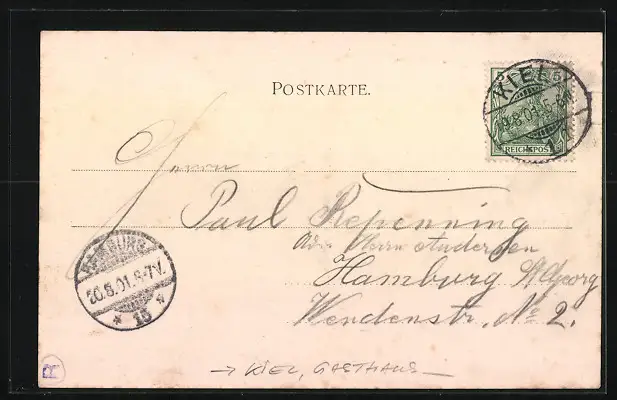 POSTKARTE.
5 5
REICHSPOST
KIEL
5-6N.
* 1
Herrn
Paul Repenning
Adr. Herrn Andersen
Hamburg St. Georg
Wendenstr. No 2.
HAMBURG
20.8.01. 6-7V.
* 15 *
→ KIEL, GASTHAUS —